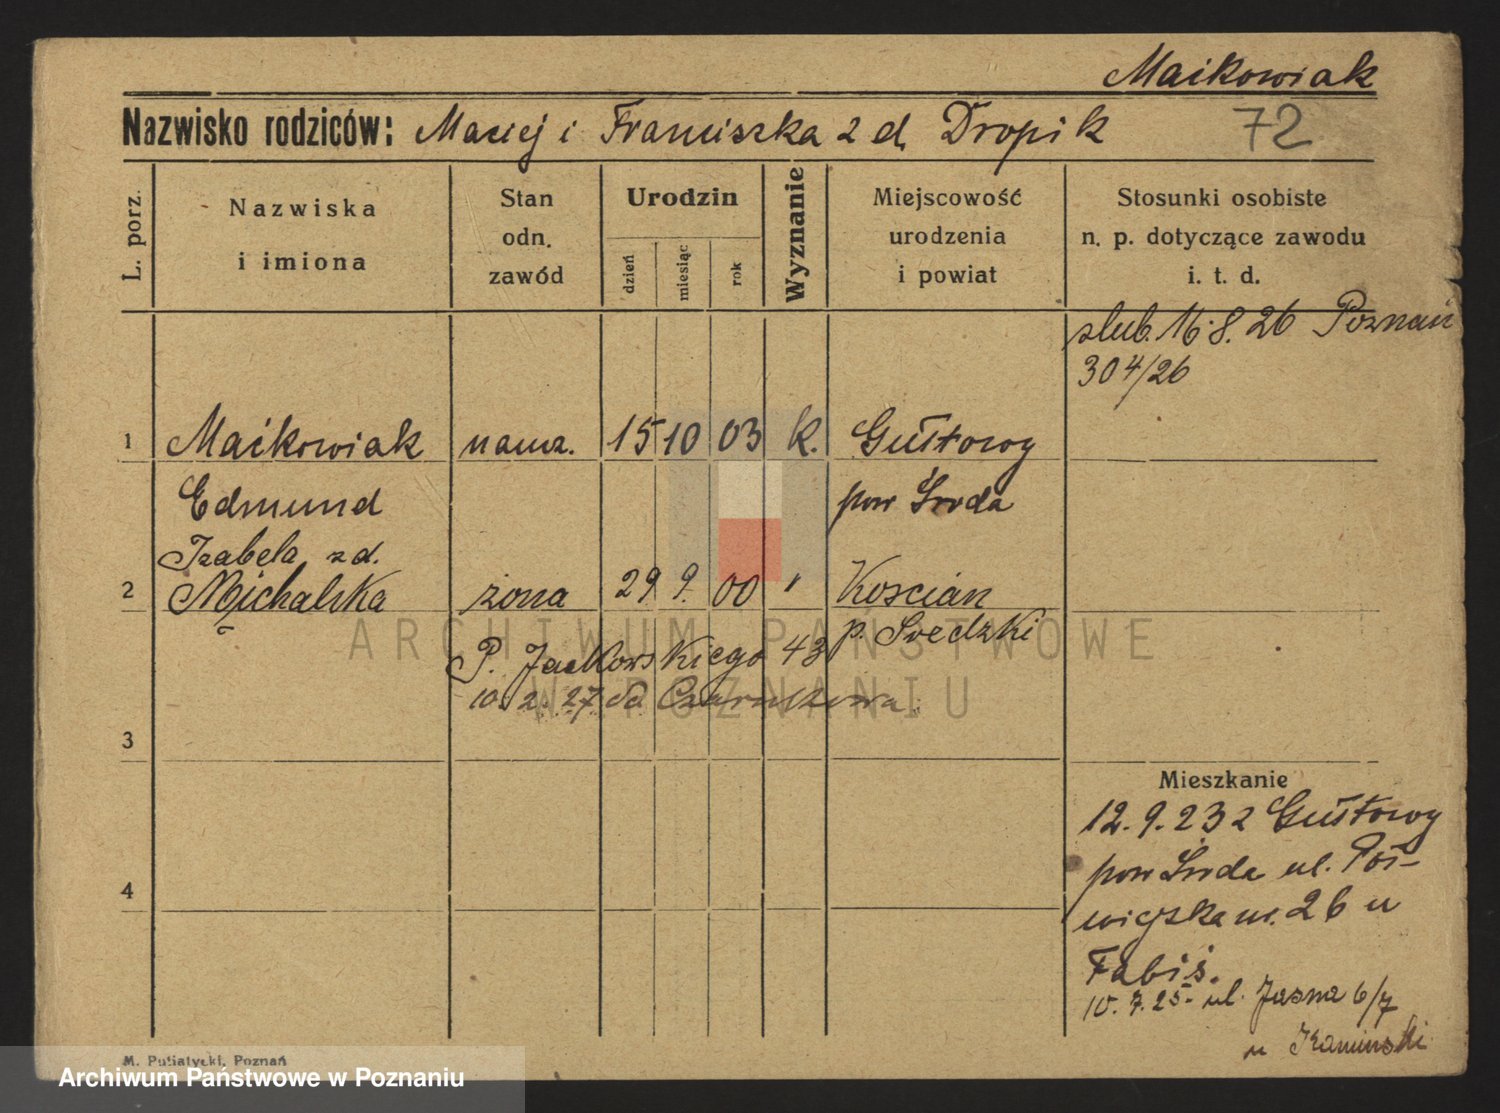 Maćkowiak
Nazwisko rodziców: Maciej i Franciszka z d. Dropik 72
L. porz.
Nazwiska
i imiona
Stan
odn.
zawód
Urodzin
dzień
miesiąc
rok
Wyznanie
Miejscowość
urodzenia
i powiat
Stosunki osobiste
n. p. dotyczące zawodu
i. t. d.
slub. 16.8.26 Poznań
304/26
1 Maćkowiak naucz. 15 10 03 k. Gułtowy
Edmund pow Środa
Izabela z d.
2 Michalska żona 29 9. 00 " Koscian
p. Sredzki
P. Jackowskiego 43
10. 2. 27 od
3
4
Mieszkanie
12. 9. 23 z Gułtowy
pow Środa ul. Pół-
wiejska nr. 26 u
Fabiś.
10. 7. 25 ul. Jasna 6/7
u Kaminski
M. Putiatycki, Poznań
ARCHIWUM PAŃSTWOWE
W POZNANIU
Archiwum Państwowe w Poznaniu